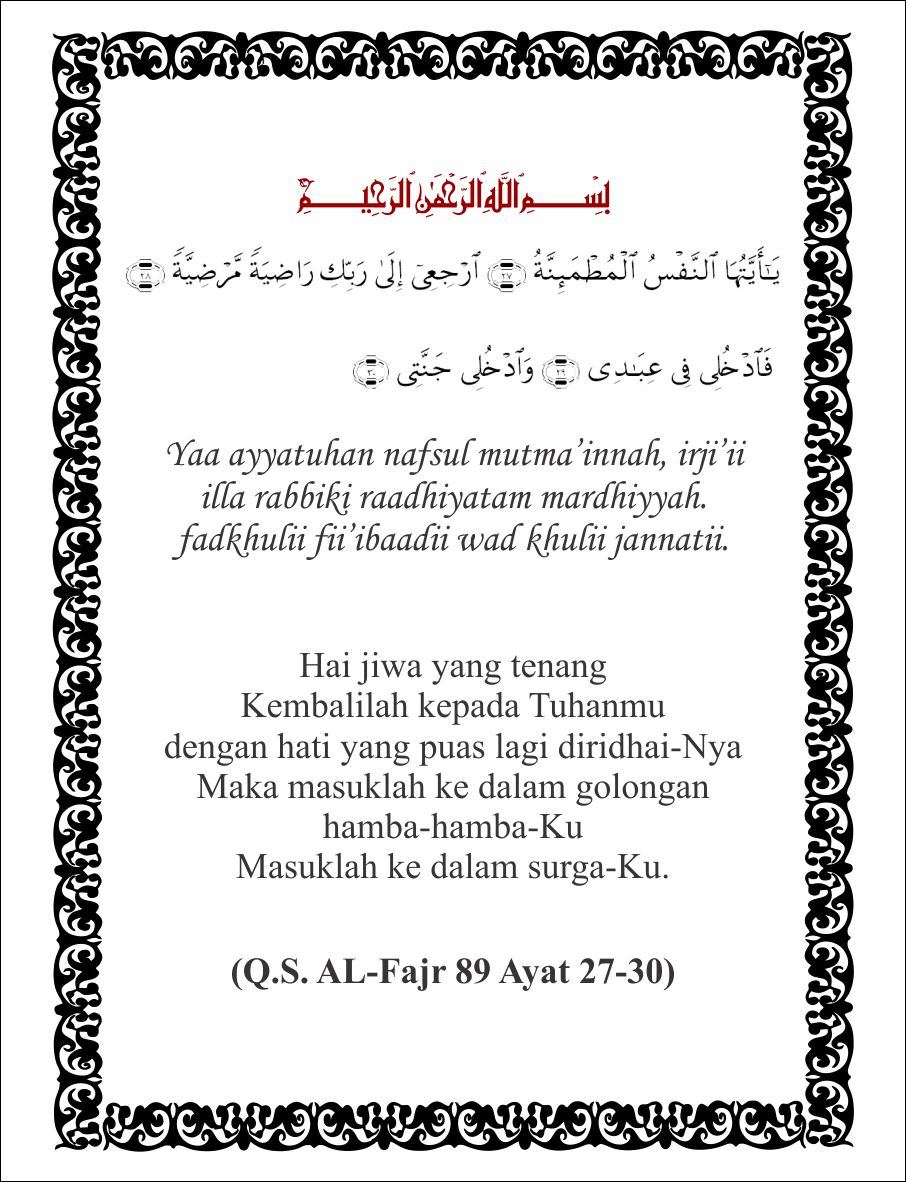 بِسْمِ ٱللَّهِ ٱلرَّحْمَٰنِ ٱلرَّحِيمِ
يَـٰٓأَيَّتُهَا ٱلنَّفْسُ ٱلْمُطْمَئِنَّةُ ٢٧ ٱرْجِعِىٓ إِلَىٰ رَبِّكِ رَاضِيَةً مَّرْضِيَّةً ٢٨
فَٱدْخُلِى فِى عِبَـٰدِى ٢٩ وَٱدْخُلِى جَنَّتِى ٣٠
Yaa ayyatuhan nafsul mutma’innah, irji’ii
illa rabbiki raadhiyatam mardhiyyah.
fadkhulii fii’ibaadii wad khulii jannatii.
Hai jiwa yang tenang
Kembalilah kepada Tuhanmu
dengan hati yang puas lagi diridhai-Nya
Maka masuklah ke dalam golongan
hamba-hamba-Ku
Masuklah ke dalam surga-Ku.
(Q.S. AL-Fajr 89 Ayat 27-30)